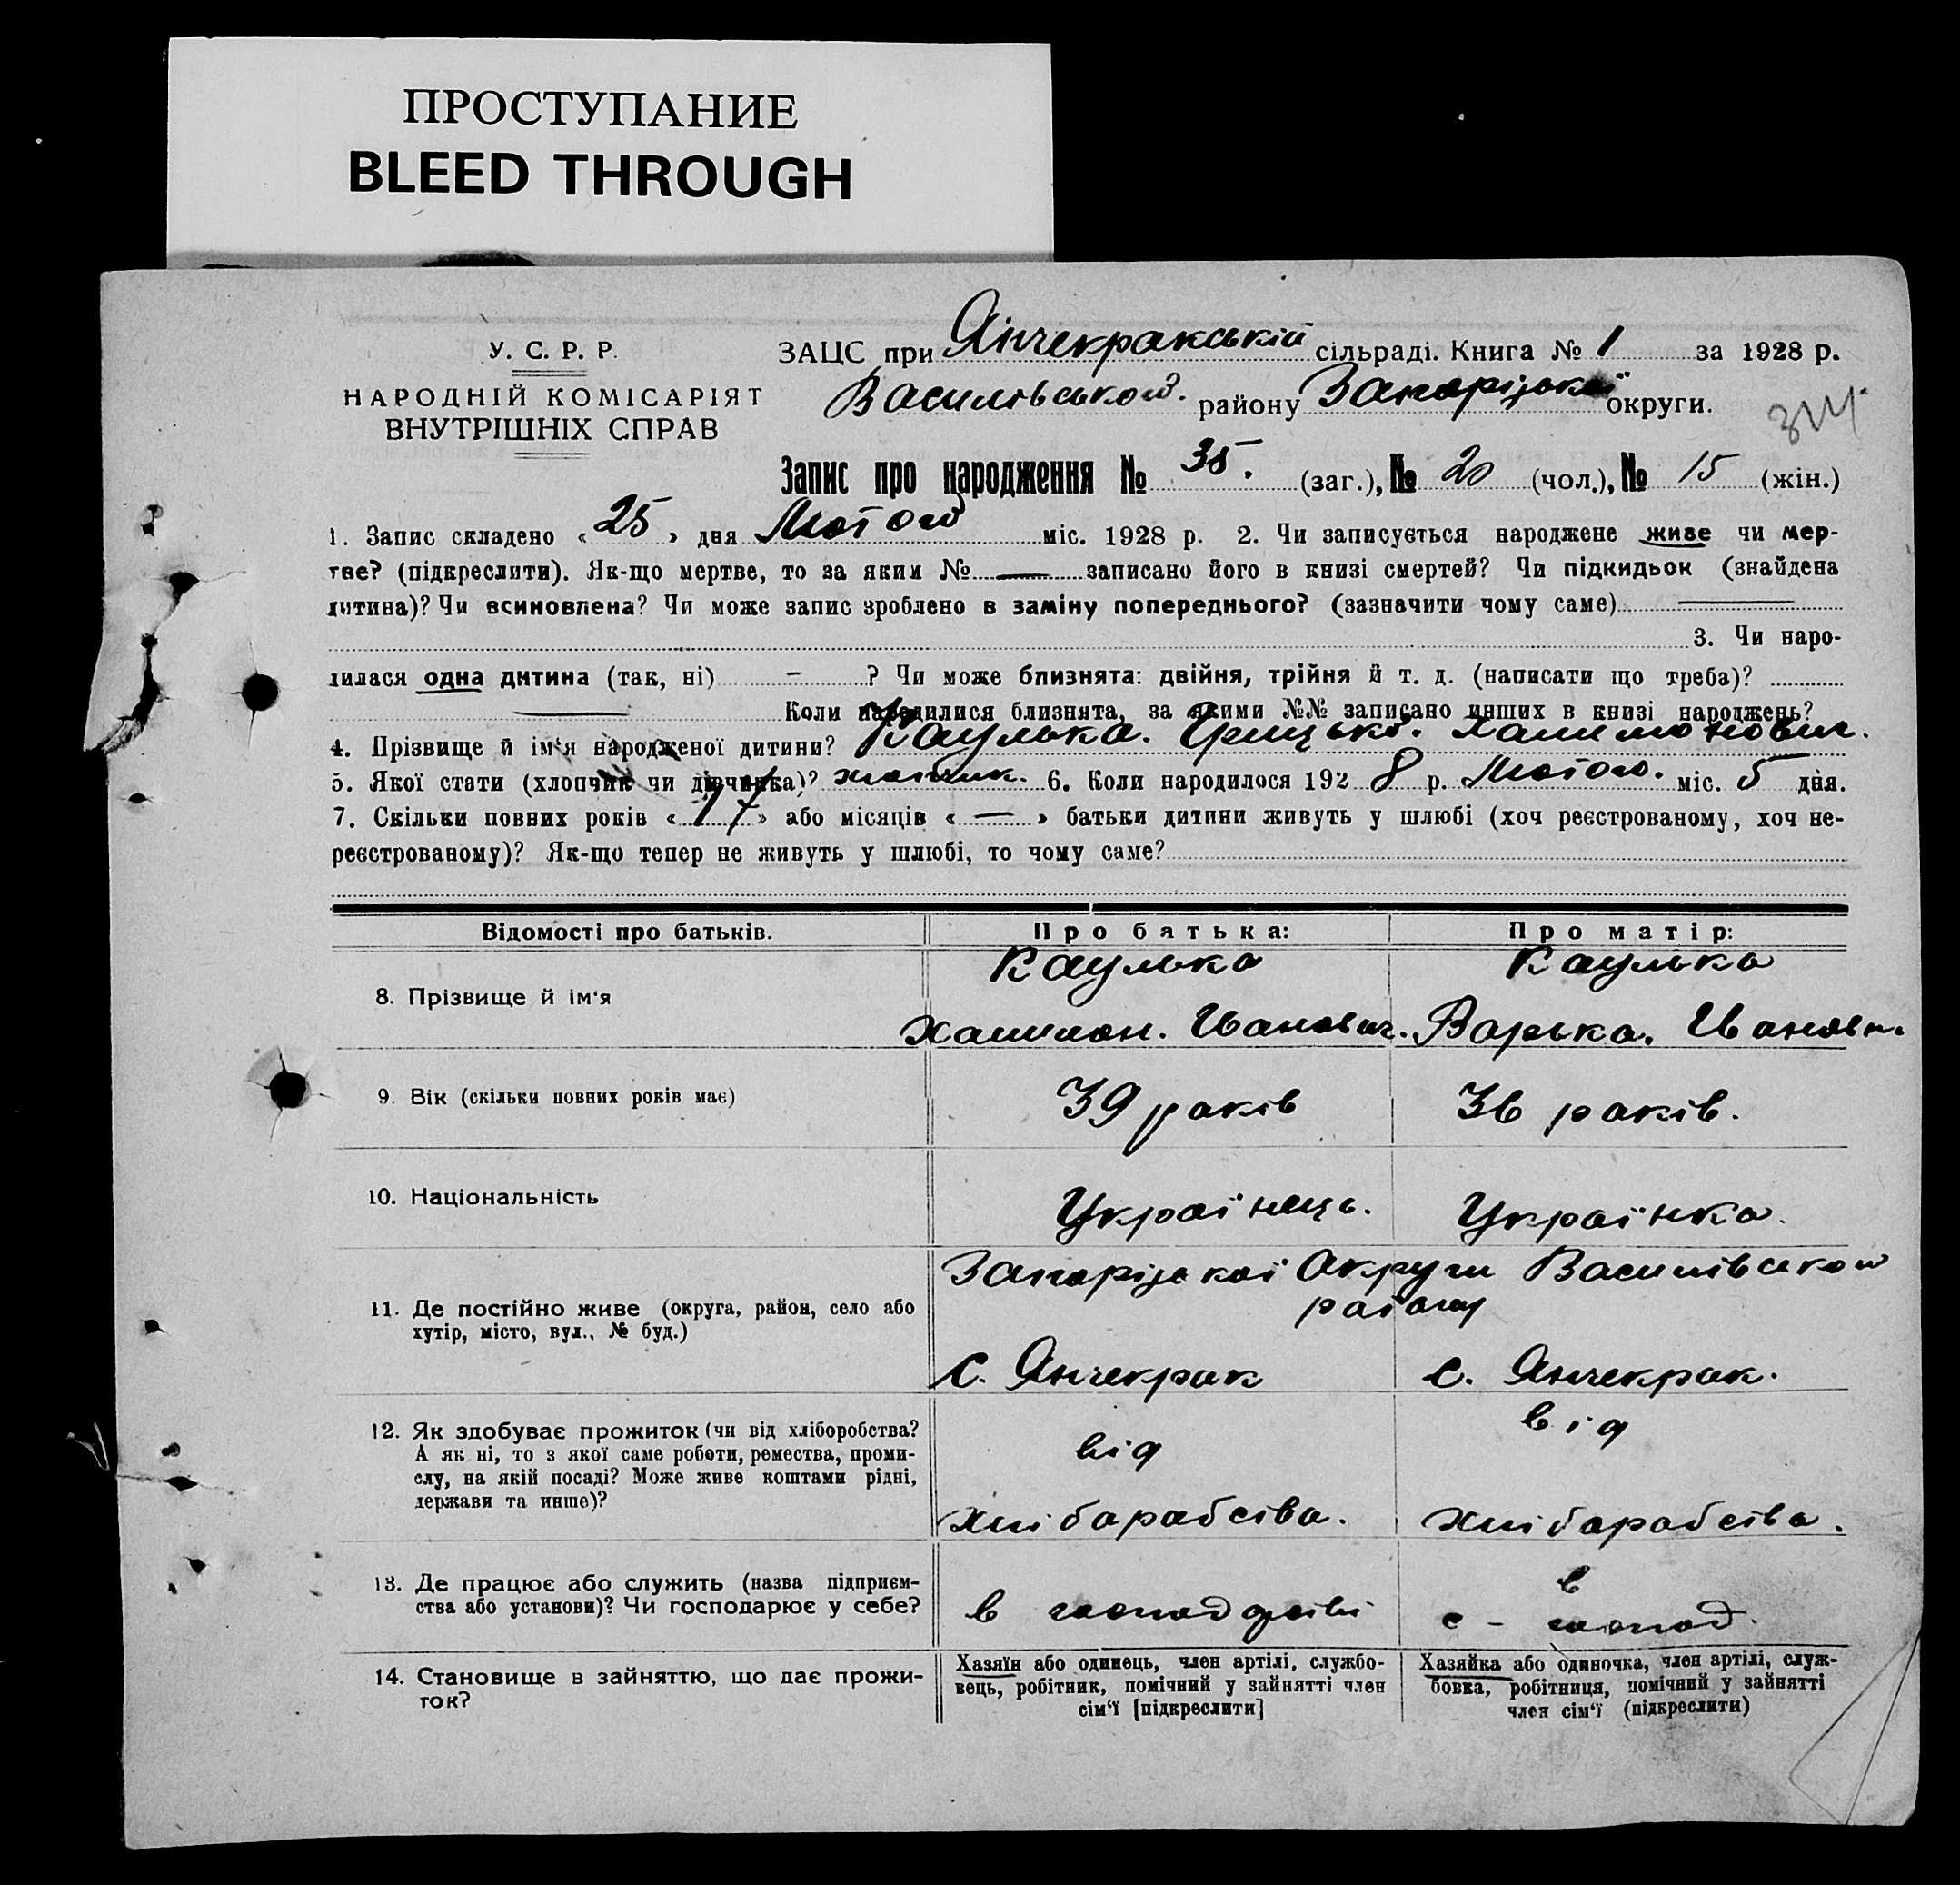 ПРОСТУПАНИЕ
BLEED THROUGH
У. С. Р. Р.
НАРОДНІЙ КОМІСАРІЯТ
ВНУТРІШНІХ СПРАВ
ЗАЦС при Янчекракській сільраді. Книга № 1 за 1928 р.
Василівського. району Запорізької округи.
Запис про народження № 35. (заг.), № 20 (чол.), № 15 (жін.)
1. Запис складено « 25 » дня Лютого міс. 1928 р. 2. Чи записується народжене живе чи мер-
тве? (підкреслити). Як-що мертве, то за яким № — записано його в книзі смертей? Чи підкидьок (знайдена
дитина)? Чи всиновлена? Чи може запис зроблено в заміну попереднього? (зазначити чому саме) —
3. Чи наро-
дилася одна дитина (так, ні) – ? Чи може близнята: двійня, трійня й т. д. (написати що треба)?
— Коли народилися близнята, за якими №№ записано инших в книзі народжень?
4. Прізвище й ім'я народженої дитини? Каулька. Грицько. Халимонович.
5. Якої стати (хлопчик чи дівчинка)? хлопчик. 6. Коли народилося 192 8 р. Лютого. міс. 5 дня.
7. Скільки повних років « 17 » або місяців « — » батьки дитини живуть у шлюбі (хоч реєстрованому, хоч не-
реєстрованому)? Як-що тепер не живуть у шлюбі, то чому саме?
Відомості про батьків. Про батька: Про матір:
8. Прізвище й ім'я
Каулька Каулька
Халимон. Іванович. Варька. Івановн.
9. Вік (скільки повних років має) 39 років 36 років.
10. Національність Українець. Українка.
11. Де постійно живе (округа, район, село або
хутір, місто, вул., № буд.)
Запорізької Округи Василівського
району
с. Янчекрак с. Янчекрак.
12. Як здобуває прожиток (чи від хліборобства?
А як ні, то з якої саме роботи, ремества, проми-
слу, на якій посаді? Може живе коштами рідні,
держави та инше)?
від від
хліборобства. хліборобства.
13. Де працює або служить (назва підприєм-
ства або установи)? Чи господарює у себе?
в
в с –
14. Становище в зайняттю, що дає прожи-
ток?
Хазяїн або одинець, член артілі, службо-
вець, робітник, помічний у зайнятті член
сім'ї [підкреслити]
Хазяйка або одиночка, член артілі, служ-
бовка, робітниця, помічний у зайнятті
член сім'ї (підкреслити)